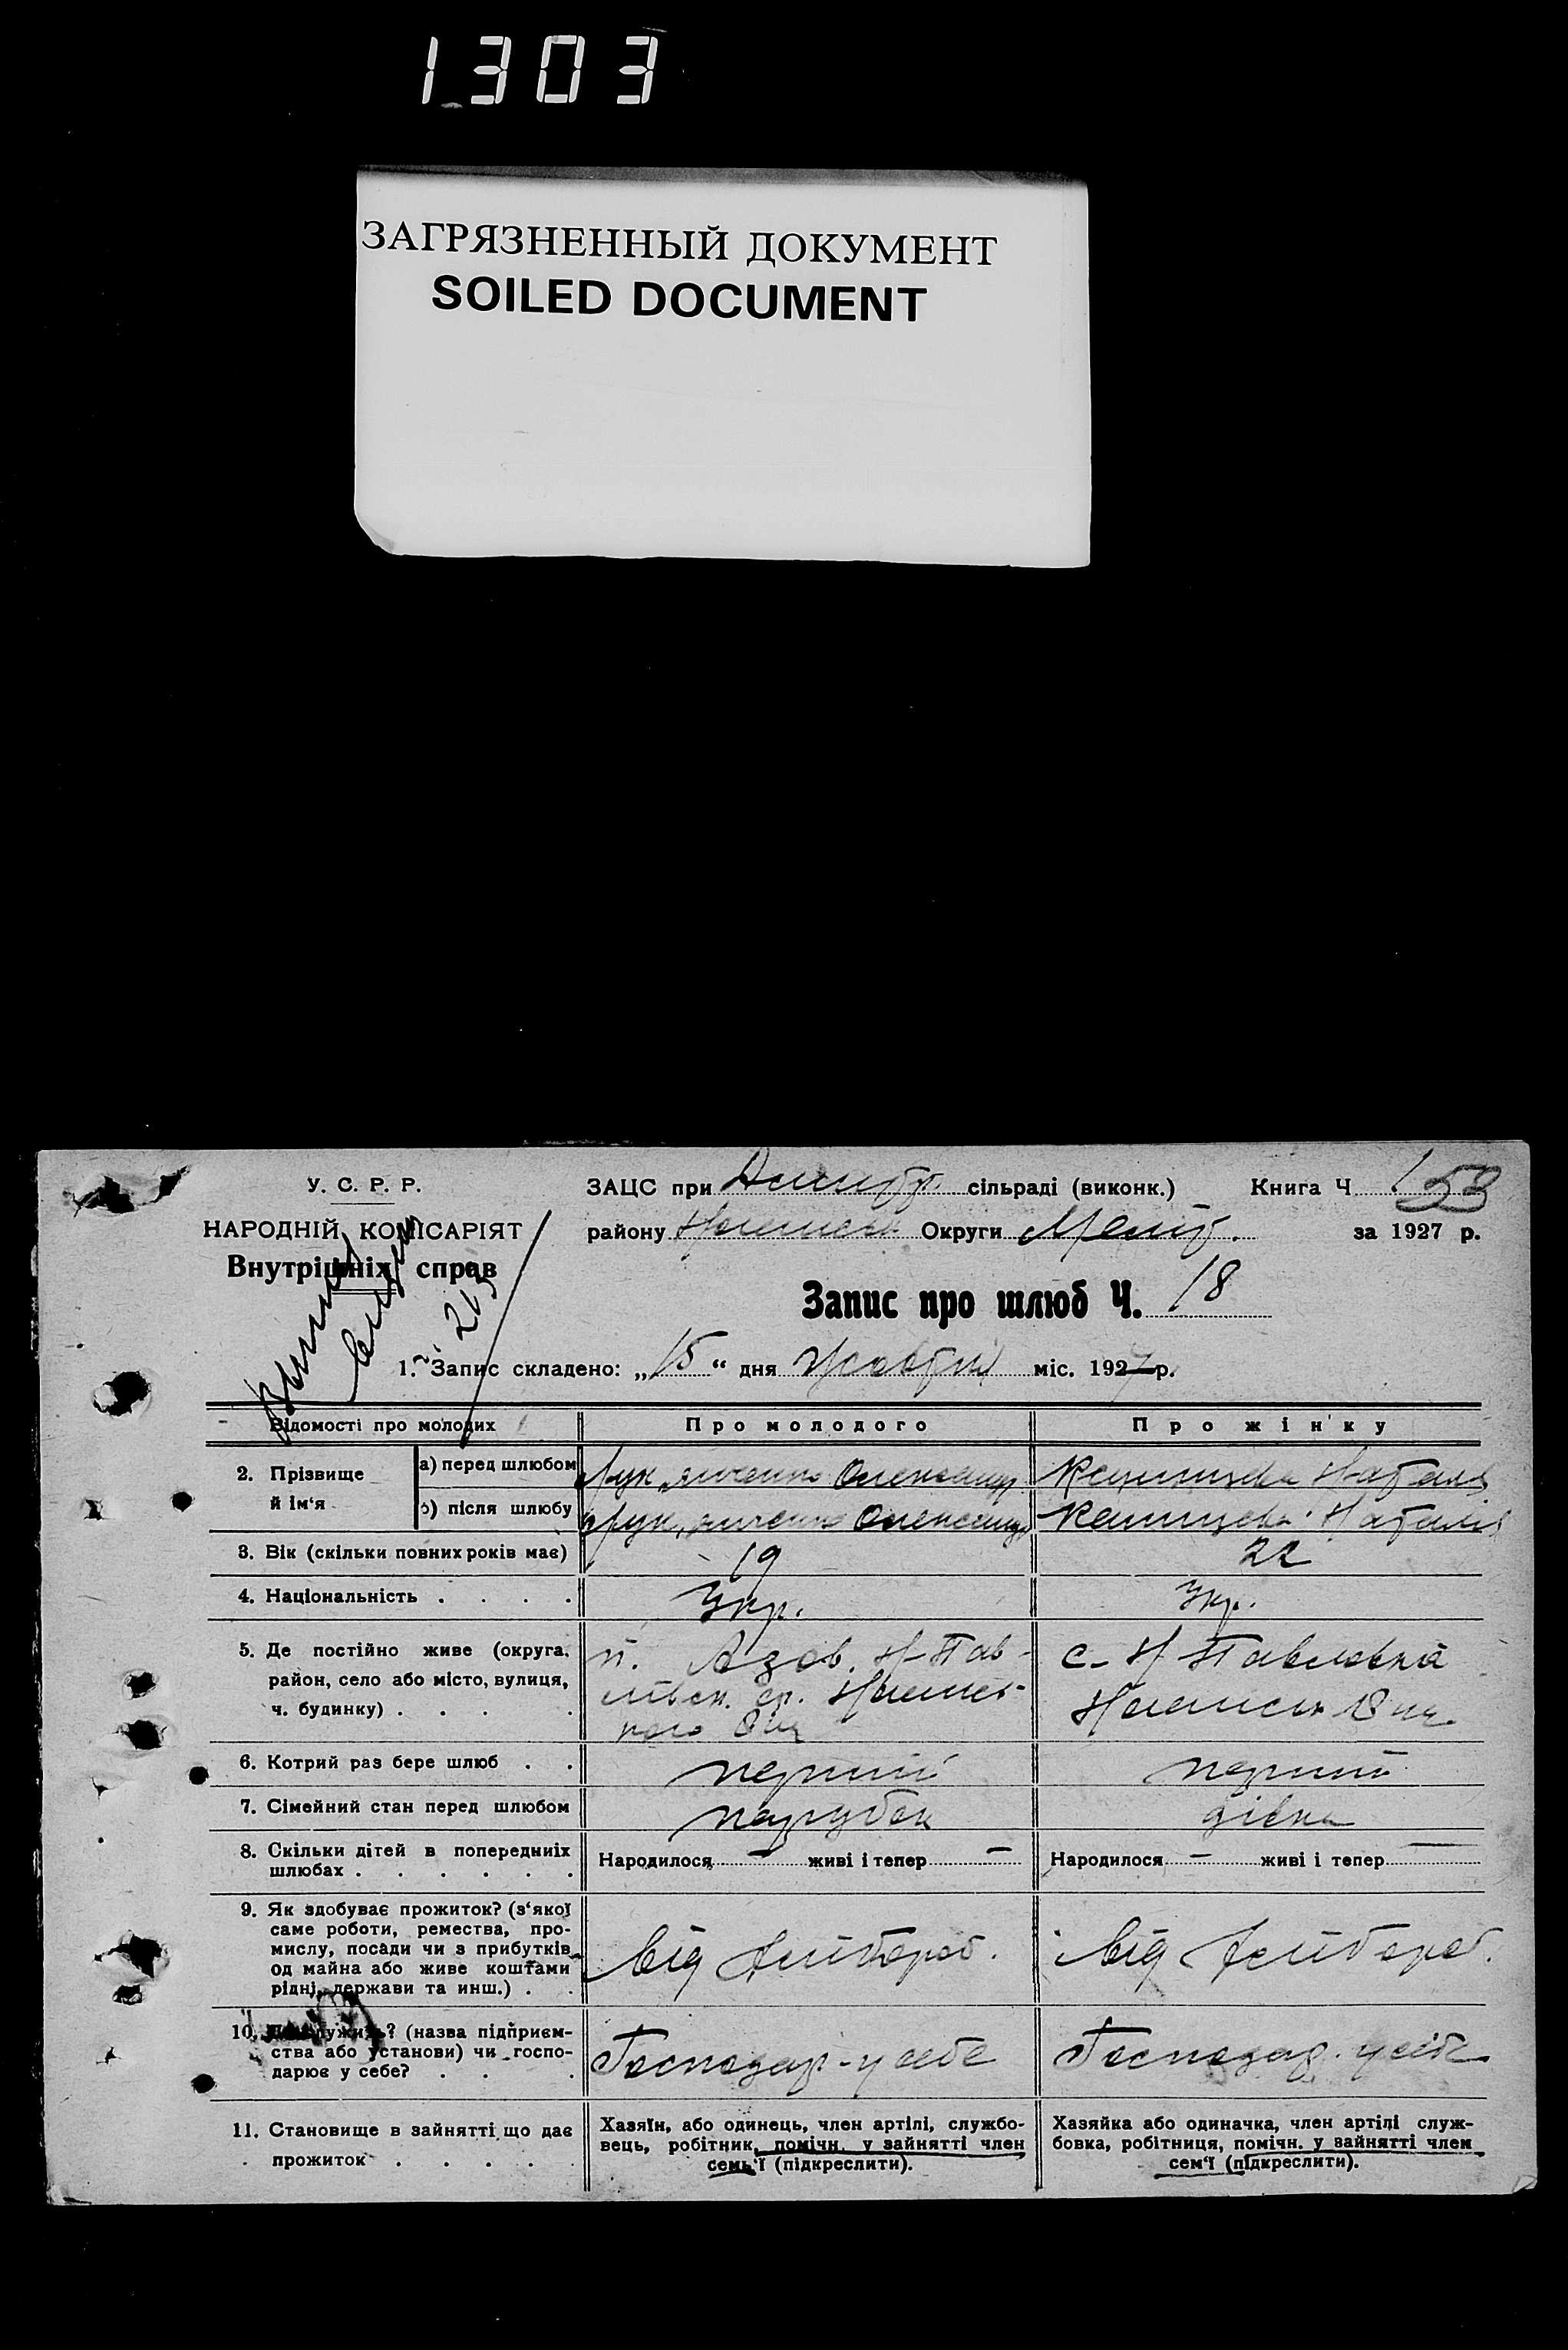 1303
ЗАГРЯЗНЕННЫЙ ДОКУМЕНТ
SOILED DOCUMENT
У. С. Р. Р.
НАРОДНІЙ КОМІСАРІЯТ
Внутрішніх справ
ЗАЦС при сільраді (виконк.) Книга Ч. 153
району Округи Меліт. за 1927 р.
Запис про шлюб Ч. 18
1. Запис складено: „15“ дня Жовтня міс. 1927 р.
Відомості про молодих Про молодого Про жінку
2. Прізвище й ім‘я
а) перед шлюбом Лук‚янченко Олександр Наталя
б) після шлюбу Лук‚янченко Олександр Наталія
3. Вік (скільки повних років має) 19 22
4. Національність . . . . Укр. Укр.
5. Де постійно живе (округа,
район, село або місто, вулиця,
ч. будинку) . . . .
п. Азов. Н-Пав-
с. Н Павловка
6. Котрий раз бере шлюб . . перший перший
7. Сімейний стан перед шлюбом парубок дівка
8. Скільки дітей в попередніх
шлюбах . . . . . .
Народилося — живі і тепер — Народилося — живі і тепер —
9. Як здобуває прожиток? (з‘якої
саме роботи, ремества, про-
мислу, посади чи з прибутків
од майна або живе коштами
рідні, держави та инш.) . .
від хлібороб. від хлібороб.
10. Де служить? (назва підприєм-
ства або установи) чи госпо-
дарює у себе? . . .
Господар. у себе Господар. у себе
11. Становище в зайнятті що дає
прожиток . . . . .
Хазяїн, або одинець, член артілі, службо-
вець, робітник, помічн. у зайнятті член
семь‘ї (підкреслити).
Хазяйка або одиначка, член артілі служ-
бовка, робітниця, помічн. у зайнятті член
сем‘ї (підкреслити).